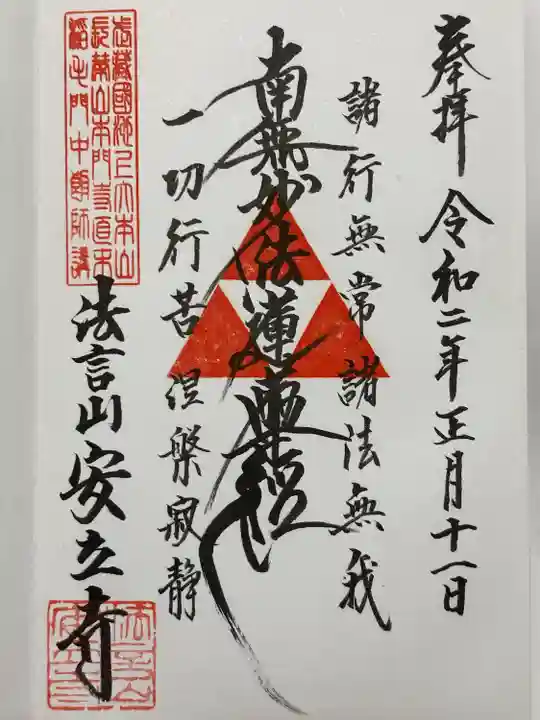 奉拝 令和二年正月十一日
諸行無常諸法無我
南無妙法蓮華経
一切行苦涅槃寂静
武藏國池上大本山
長榮山本門寺直末
瘤も門中 師講
法言山安立寺